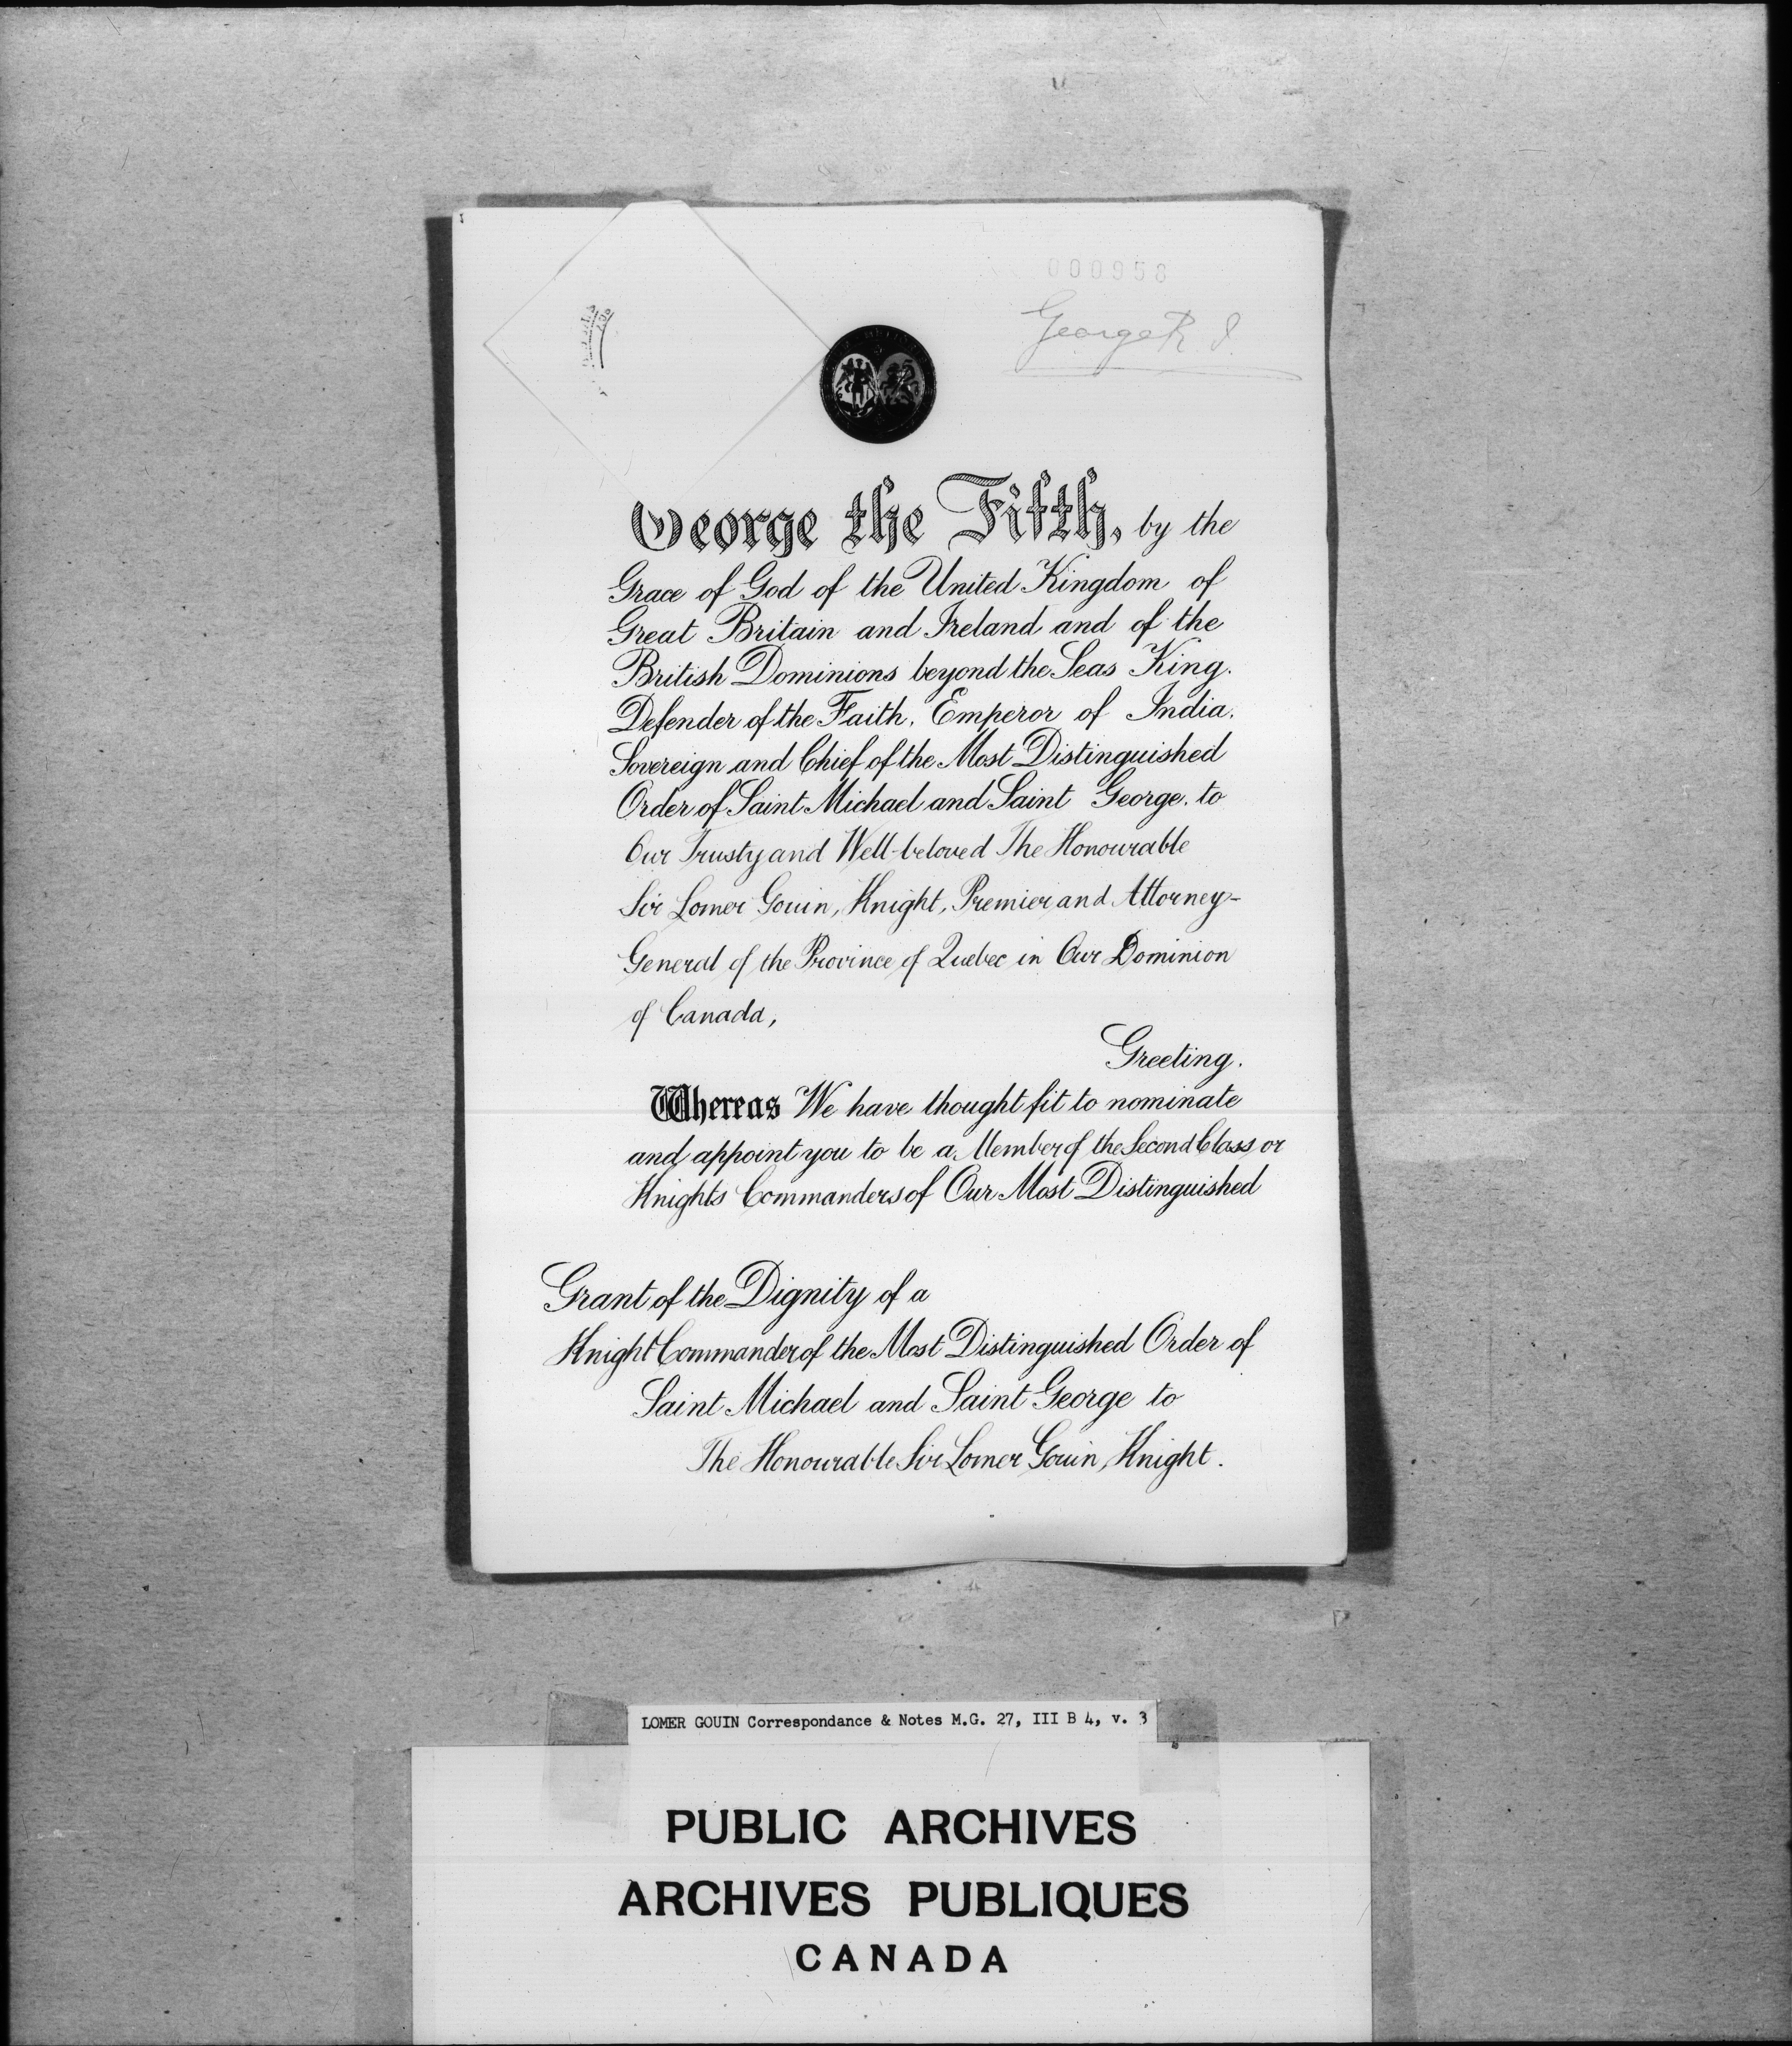 000958
George R I.
George the Fifth, by the
Grace of God of the United Kingdom of
Great Britain and Ireland and of the
British Dominions beyond the Seas King.
Defender of the Faith. Emperor of India.
Sovereign and Chief of the Most Distinguished
Order of Saint Michael and Saint George. to
Our Trusty and Well-beloved The Honourable
Sir Lomer Gouin, Knight, Premier and Attorney-
General of the Province of Quebec in Our Dominion
of Canada,
Greeting.
Whereas We have thought fit to nominate
and appoint you to be a Member of the Second Class or
Knights Commanders of Our Most Distinguished
Grant of the Dignity of a
Knight Commander of the Most Distinguished Order of
Saint Michael and Saint George to
The Honourable Sir Lomer Gouin, Knight.
LOMER GOUIN Correspondance & Notes M.G. 27, III B 4, v. 3
PUBLIC ARCHIVES
ARCHIVES PUBLIQUES
CANADA